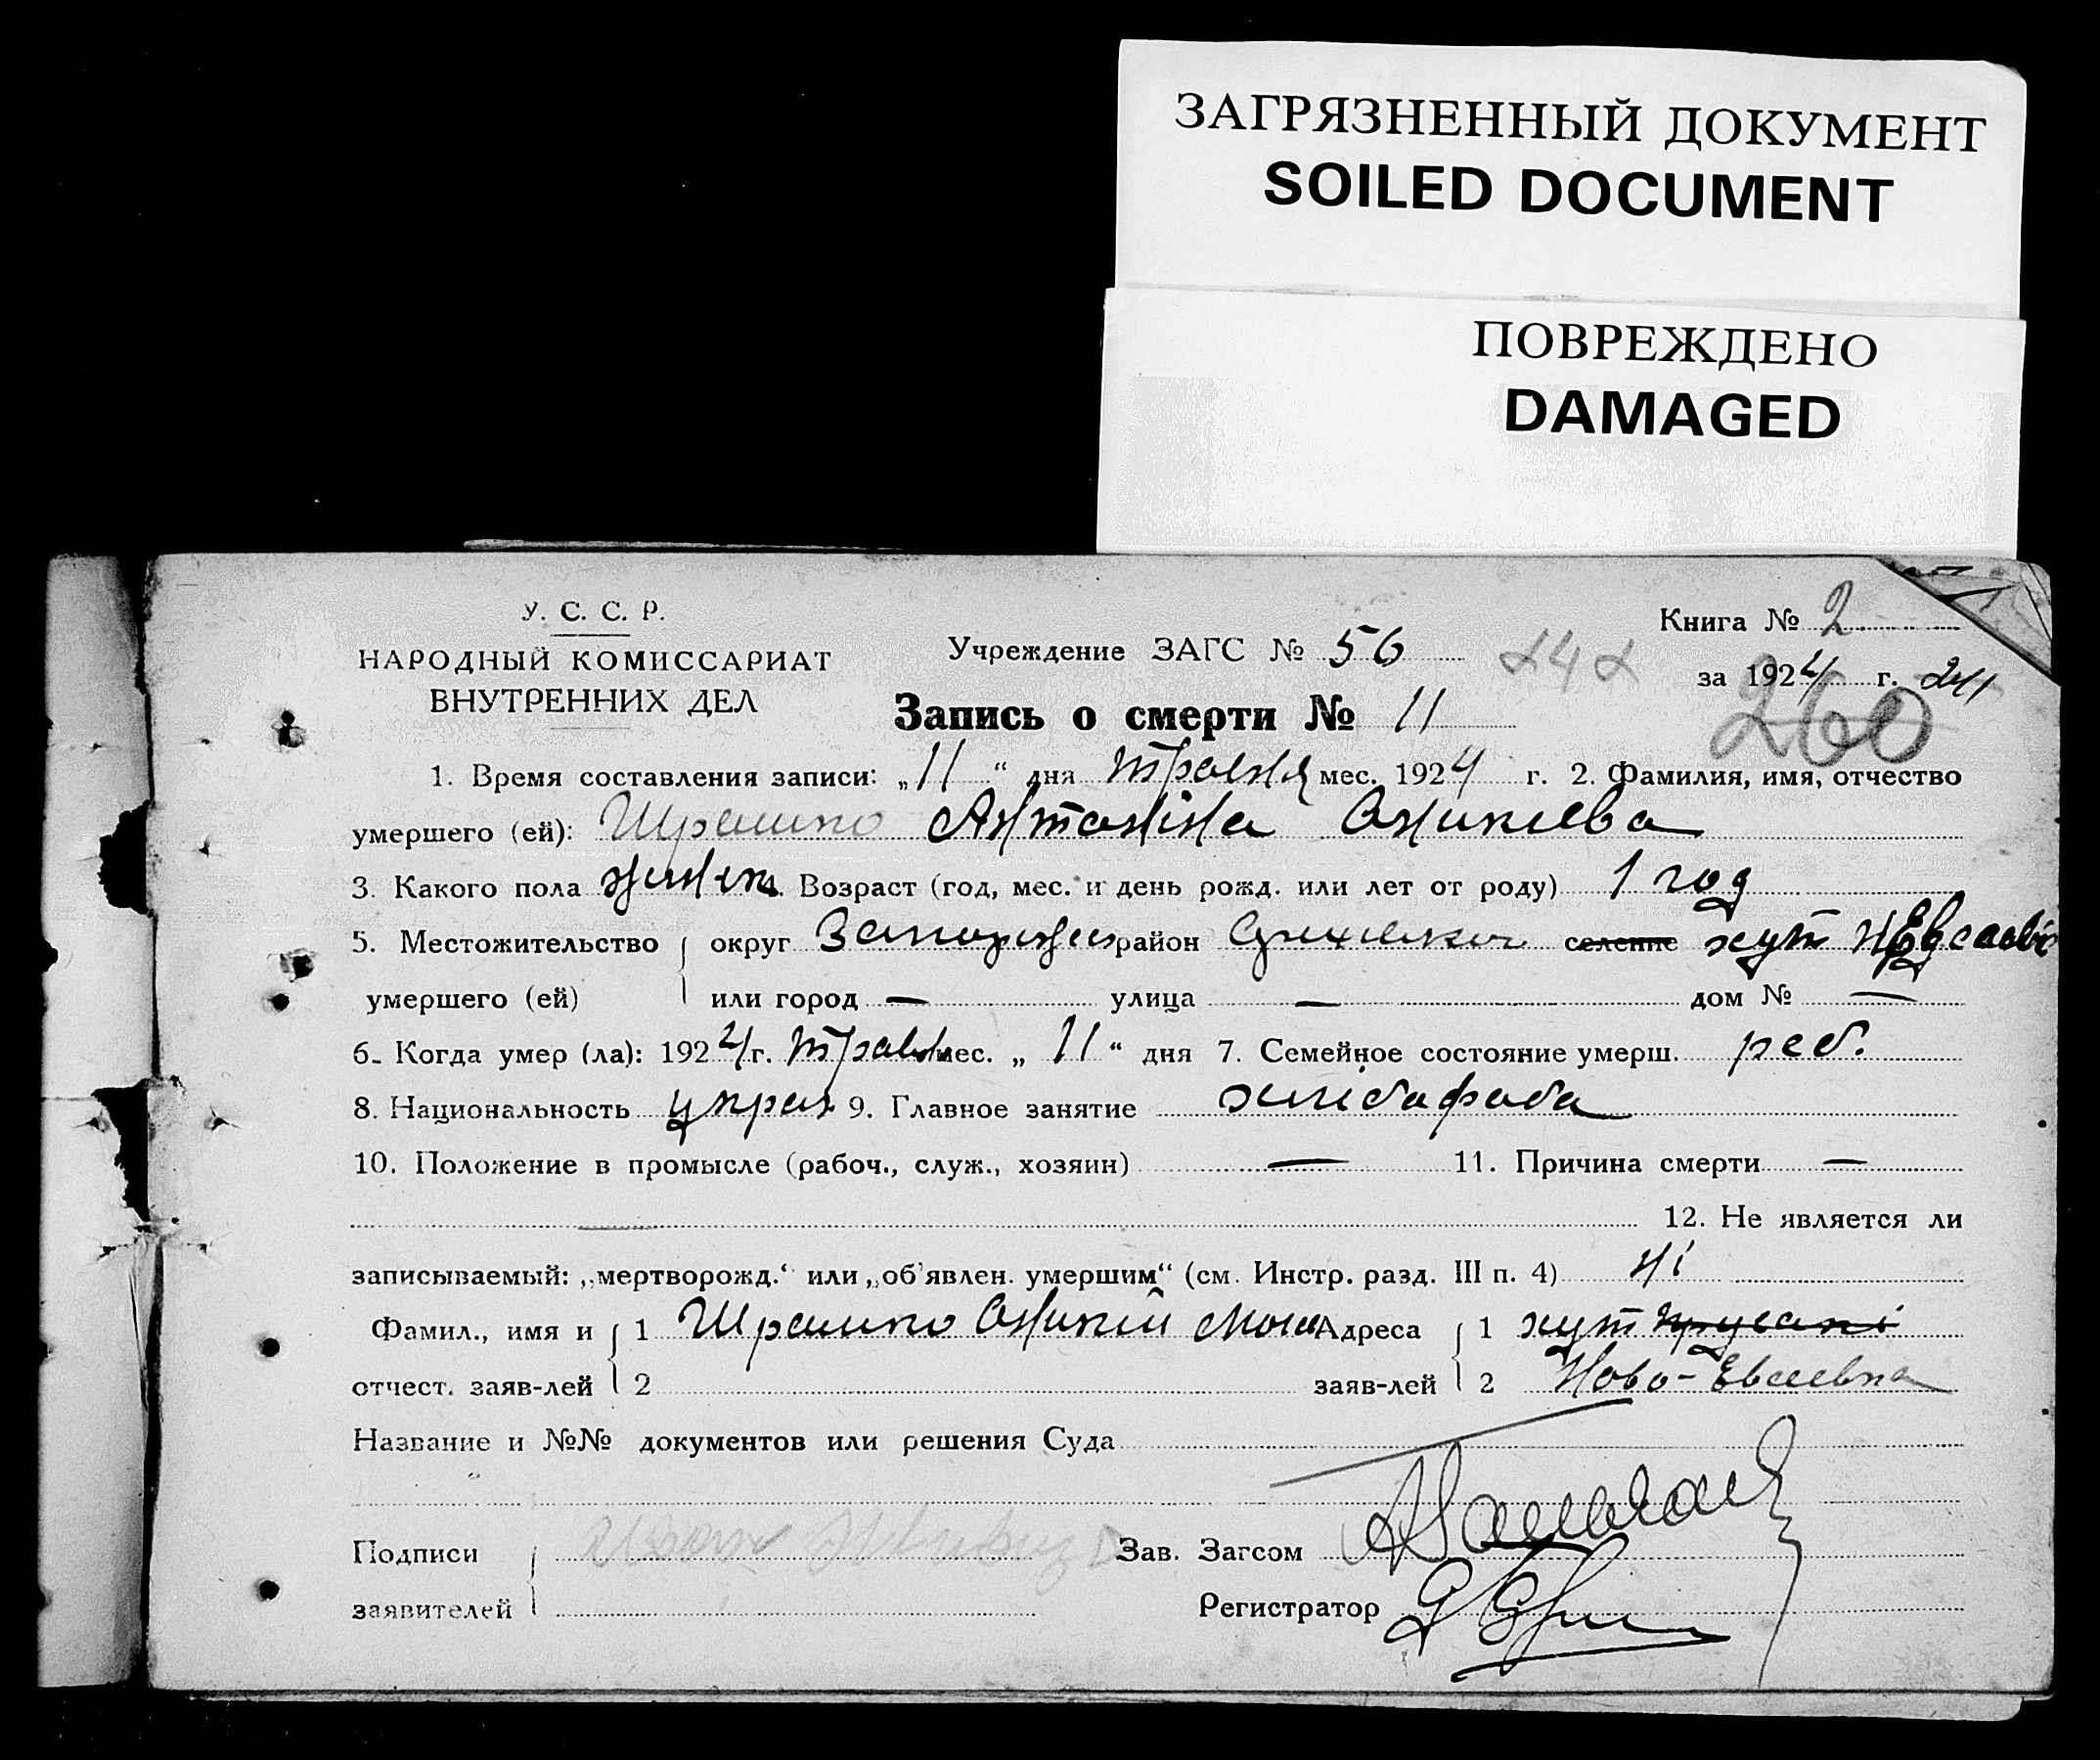 ЗАГРЯЗНЕННЫЙ ДОКУМЕНТ
SOILED DOCUMENT
ПОВРЕЖДЕНО
DAMAGED
У. С. С. Р.
НАРОДНЫЙ КОМИССАРИАТ
ВНУТРЕННИХ ДЕЛ
Учреждение ЗАГС № 56
Книга № 2
за 1924 г. 241
242
260
Запись о смерти № 11
1. Время составления записи: „11“ дня травня мес. 1924 г. 2. Фамилия, имя, отчество
умершего (ей): Шрамко Антаніна Оникиева
3. Какого пола женск 4. Возраст (год, мес. и день рожд. или лет от роду) 1 год
5. Местожительство округ район селение хут
умершего (ей) или город — улица — дом № —
6. Когда умер (ла): 1924 г. травня мес. „11“ дня 7. Семейное состояние умерш. реб.
8. Национальность украї 9. Главное занятие
10. Положение в промысле (рабоч., служ., хозяин) — 11. Причина смерти —
12. Не является ли
записываемый: „мертворожд.“ или „об'явлен. умершим“ (см. Инстр. разд. III п. 4) ні
Фамил., имя и 1 Шрамко Оникий Адреса 1 хут
отчест. заяв-лей 2 заяв-лей 2 Ново-Евсеевка
Название и №№ документов или решения Суда
Подписи Зав. Загсом
заявителей Регистратор